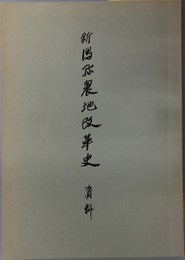 新潟県農地改革史
資料